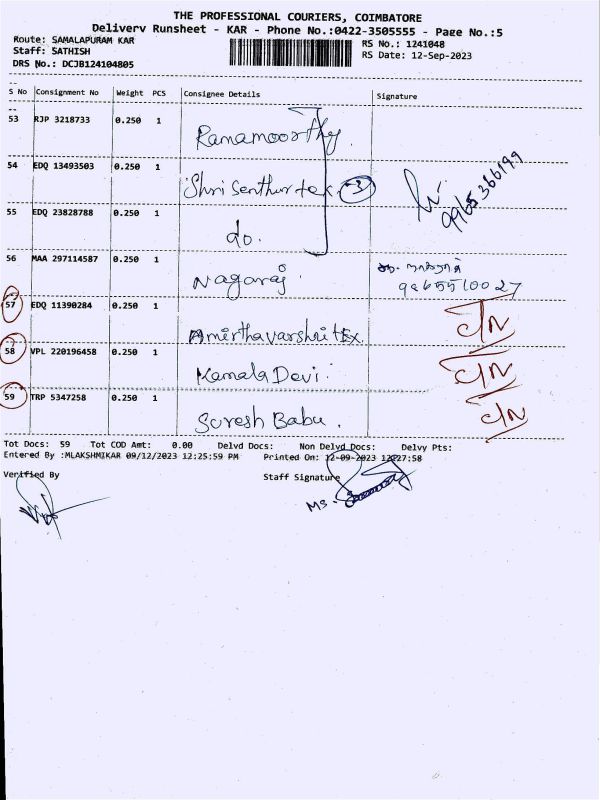 THE PROFESSIONAL COURIERS, COIMBATORE
Delivery Runsheet - KAR - Phone No.:0422-3505555 - Page No.:5
Route: SAMALAPURAM KAR
RS No.: 1241048
Staff: SATHISH
RS Date: 12-Sep-2023
DRS No.: DCJB124104805
S No Consignment No Weight PCS Consignee Details Signature
53 RJP 3218733 0.250 1
Ramamoorthy.
54 EDQ 13493503 0.250 1
Shri Senthur tex 3
9965366199
55 EDQ 23828788 0.250 1
do.
56 MAA 297114587 0.250 1
Nagaraj.
9965510027
57 EDQ 11390284 0.250 1
Amirthavarshri tEx. C/N
58 VPL 220196458 0.250 1
Kamala Devi. C/N
59 TRP 5347258 0.250 1
Suresh Babu. C/N
Tot Docs: 59 Tot COD Amt: 0.00 Delvd Docs: Non Delvd Docs: Delvy Pts:
Entered By :MLAKSHMIKAR 09/12/2023 12:25:59 PM Printed On: 12-09-2023 12:27:58
Verified By Staff Signature